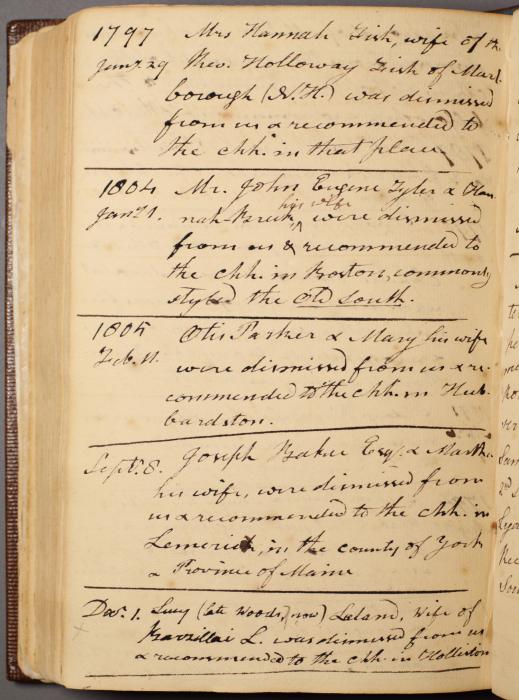 1797 Mrs Hannah Fisk, wife of the
Jany. 29 Rev. Holloway Fisk of Marl-
borough (N.H.) was dismissed
from us & recommended to
the chh. in that place
1804 Mr. John Eugene Tyler & Han-
Jan. 21. nah Parick his wife were dismissed
from us & recommended to
the chh. in Boston, commonly
styled the Old South.
1805 Otis Parker & Mary his wife
Feb. 11. were dismissed from us & re-
commended to the chh. in Hub-
bardston.
Sept. 8. Joseph Baker Esq. & Martha
his wife, were dismissed from
us & recommended to the chh. in
Lemerick, in the county of York
& Province of Maine
Dec. 1. Lucy (late Woods, now) Leland, wife of
Barzillai L. was dismissed from us
& recommended to the chh. in Holliston